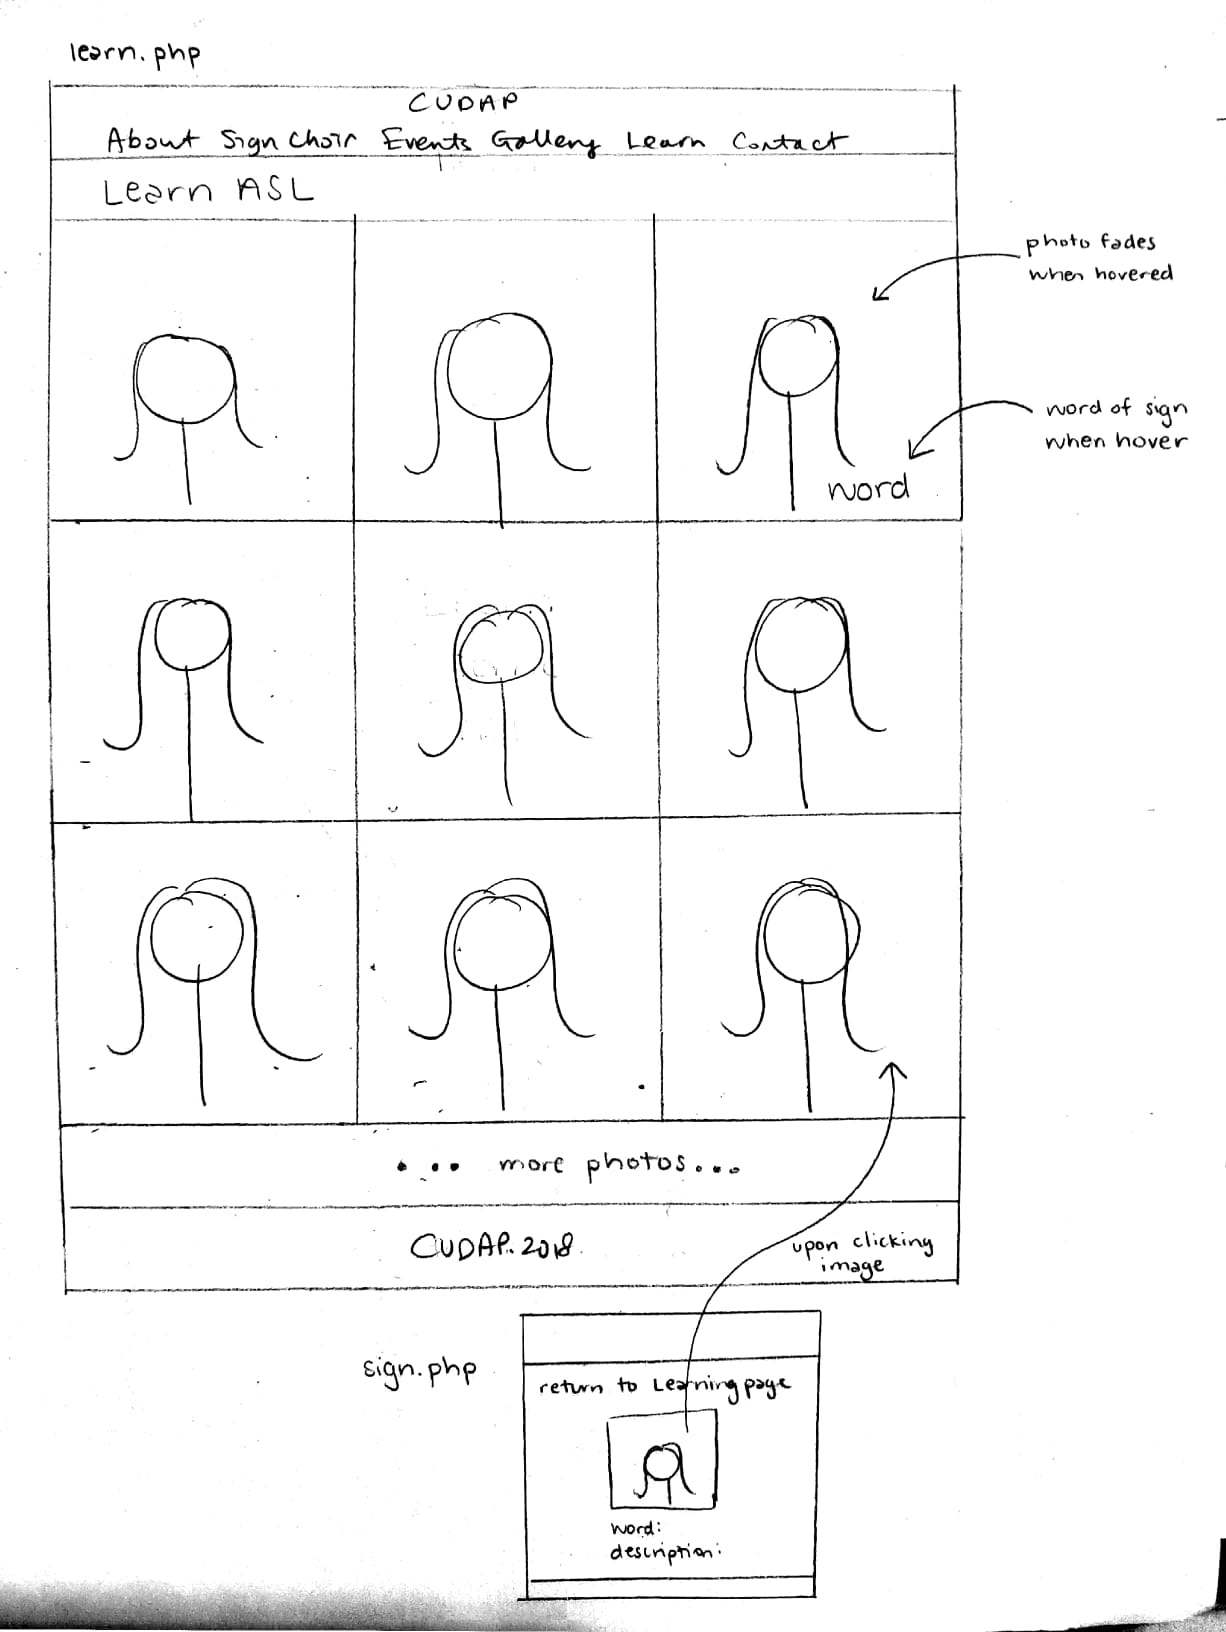 learn.php
CUDAP
About Sign Choir Events Gallery Learn Contact
Learn ASL
photo fades
when hovered
word of sign
when hover
word
... more photos...
CUDAP. 2018
upon clicking
image
sign.php
return to Learning page
word:
description: